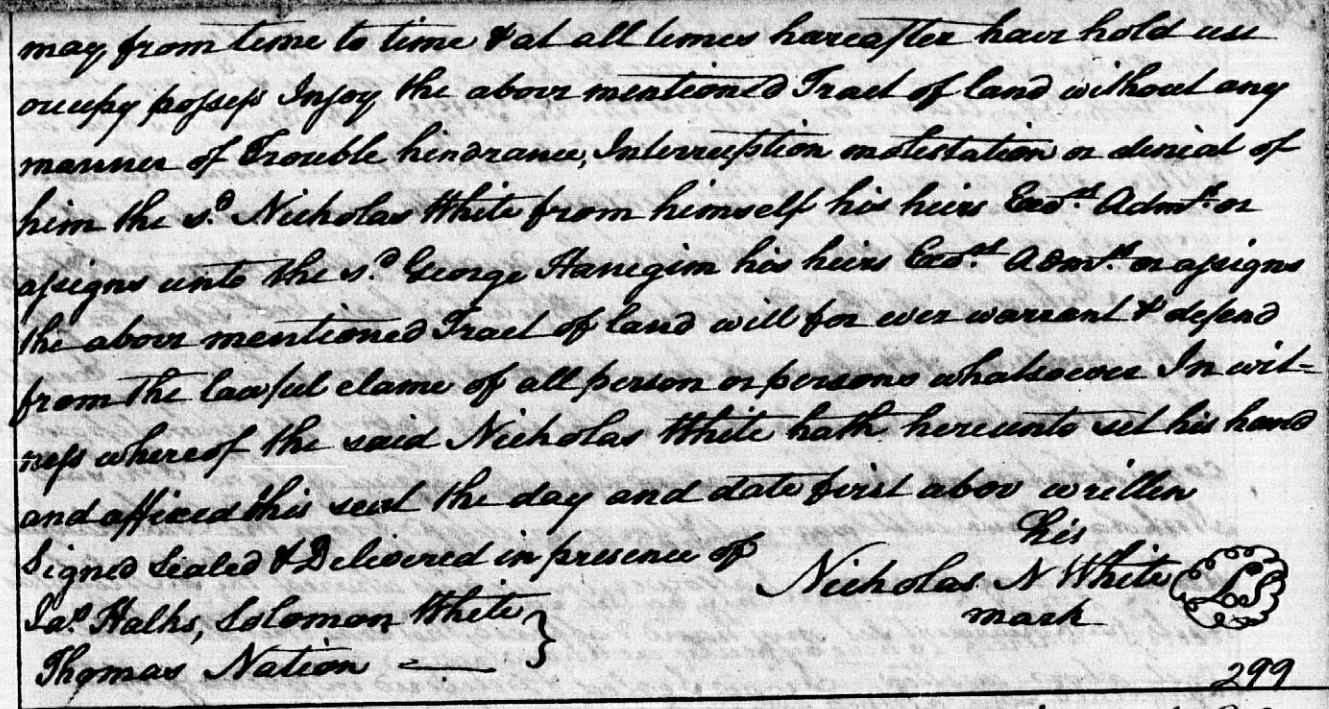 may from time to time & at all times hareafter have hold use
occupy possess Injoy the above mentioned Tract of land without any
manner of Trouble hindrance, Interruption molistation or denial of
him the sd. Nicholas White from himself his heirs Exors. Admrs. or
assigns unto the sd. George Hanegim his heirs Exors. Admrs. or assigns
the above mentioned Tract of land will for ever warrant & defend
from the lawful clame of all person or persons whatsoever In wit=
ness whereof the said Nicholas White hath hereunto set his hand
and affixed his seal the day and date first abov written
Signed Sealed & Delivered in presence of
his
Nicholas N White LS
mark
Jas. Halks, Solomon White
Thomas Nation
299